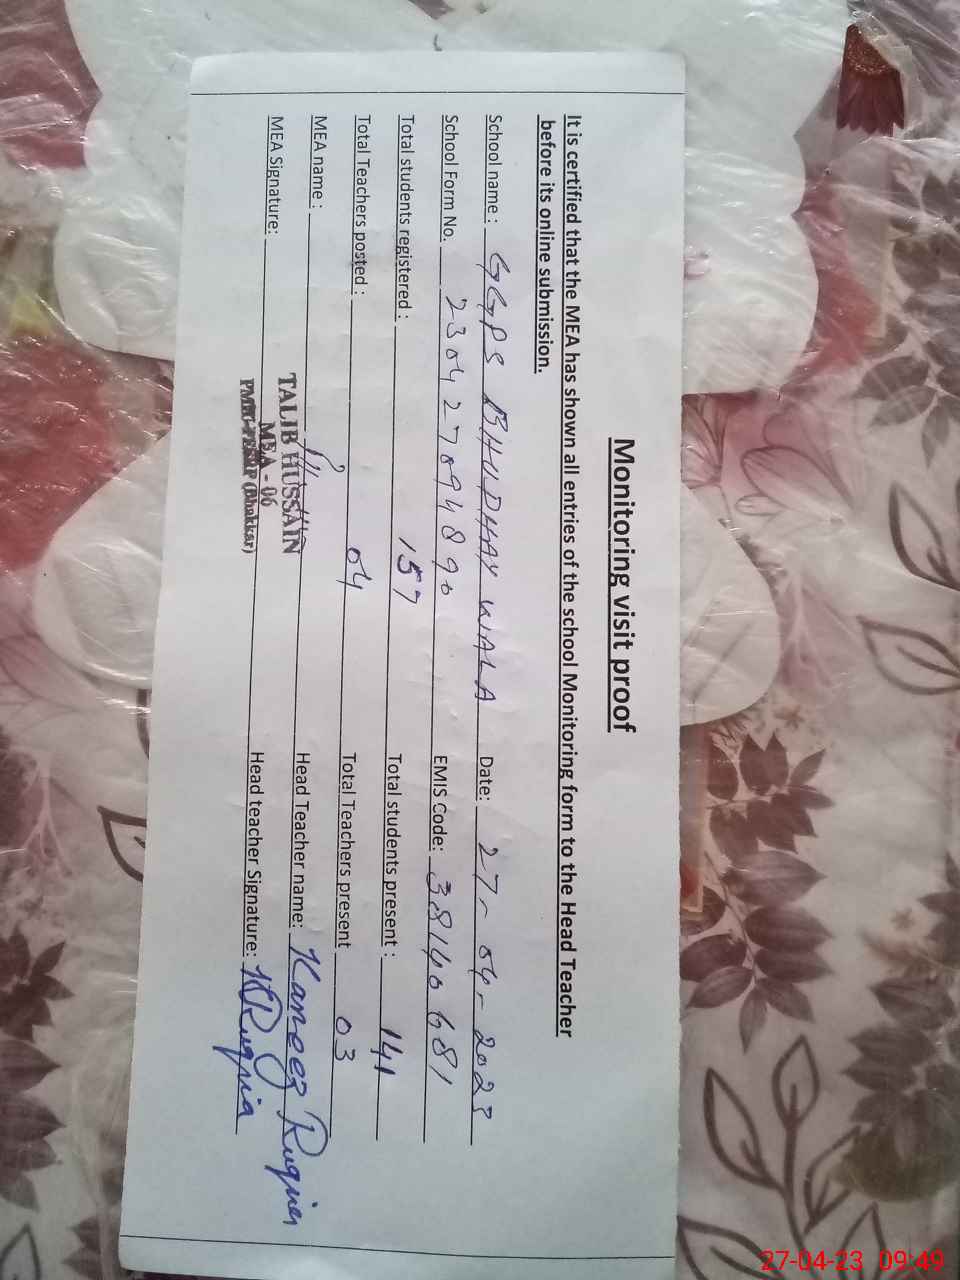 Monitoring visit proof
It is certified that the MEA has shown all entries of the school Monitoring form to the Head Teacher
before its online submission.
School name : GGPS BHUDHAY WALA Date: 27-04-2023
School Form No. 230427094890 EMIS Code: 38140681
Total students registered : 157 Total students present : 141
Total Teachers posted : 04 Total Teachers present 03
MEA name : TALIB HUSSAIN Head Teacher name: Kaneez Ruqia
MEA - 06
MEA Signature: (Bhakkar) Head teacher Signature: K Ruqia
27-04-23 09:49